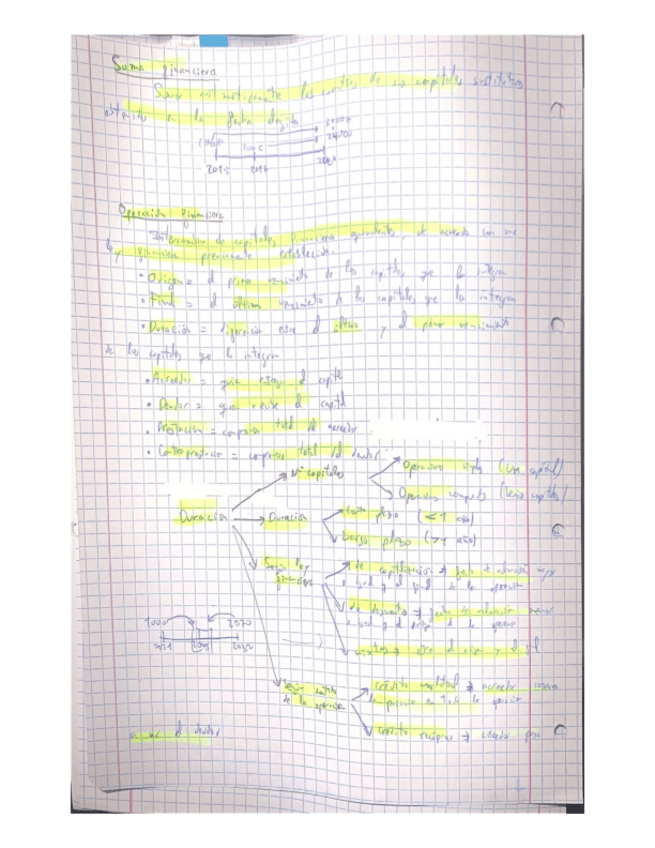 Suma financiera
Sumar aritméticamente los cuantías de los capitales sustitutos
obtenidos en la fecha elegida
2015 2016
Operación financiera
Intercambio de capitales financieros equivalentes, de acuerdo con una
ley financiera previamente establecida.
• Origen = el primer vencimiento de los capitales que la integran
• Final = el último vencimiento de los capitales que la integran
• Duración = diferencia entre el último y el primer vencimiento
de los capitales que la integran
• Acreedor = quien entrega el capital
• Deudor = quien recibe el capital
• Prestación = compromiso total del acreedor
• Contraprestación = compromiso total del deudor
Nº capitales
Operación simple (un capital)
Operación compuesta (varios capitales)
Duración
Duración
Corto plazo (<1 año)
Largo plazo (>1 año)
Según ley
financiera
de capitalización → fecha de valoración mayor
o igual y al final de la operación
de descuento → fecha de valoración menor
o igual y al origen de la operación
mixtas → entre el origen y el final
Según
de la operación
crédito unilateral → acreedor conserva
de principio a fin
crédito recíproco → acreedor pasa
a ser el deudor